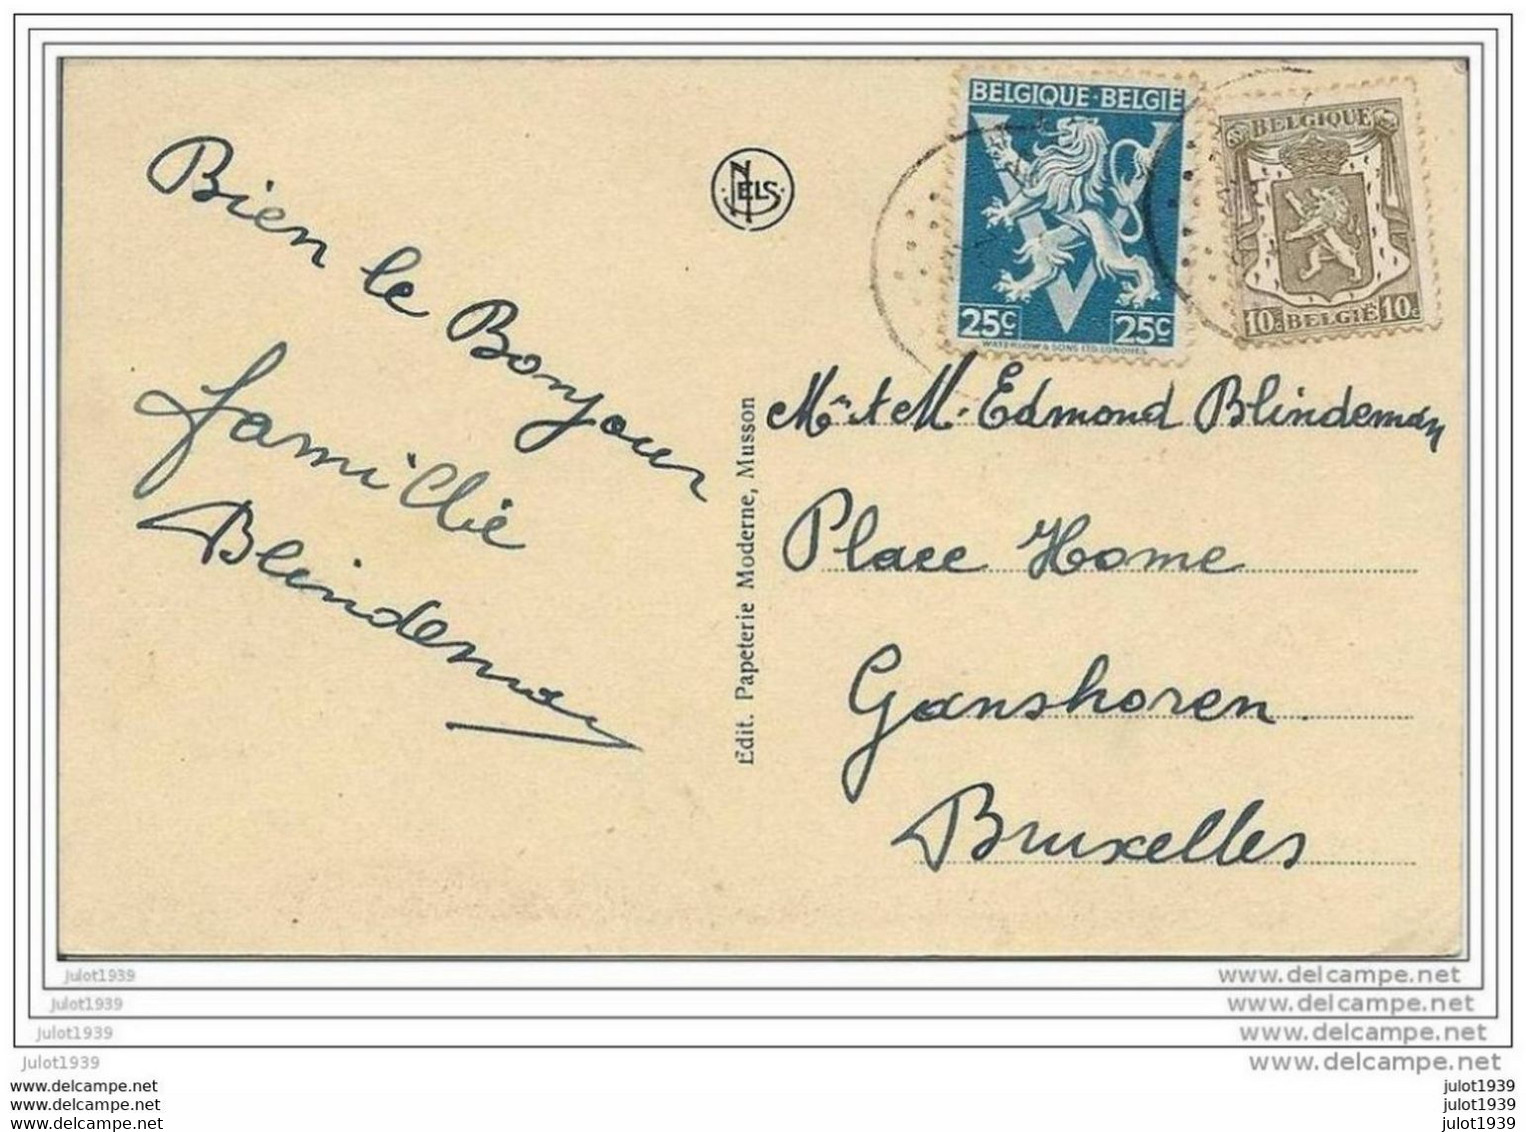 Bien le Bonjour
famille
Blindeman
NELS
Edit. Papeterie Moderne, Musson
BELGIQUE-BELGIË
25C 25C
WATERLOW & SONS LTD. LONDRES
BELGIQUE
10c BELGIË 10c
Mr & M. Edmond Blindeman
Place Home
Ganshoren
Bruxelles
julot1939 www.delcampe.net
julot1939 www.delcampe.net
julot1939 www.delcampe.net
julot1939 www.delcampe.net
www.delcampe.net julot1939
www.delcampe.net julot1939
www.delcampe.net julot1939